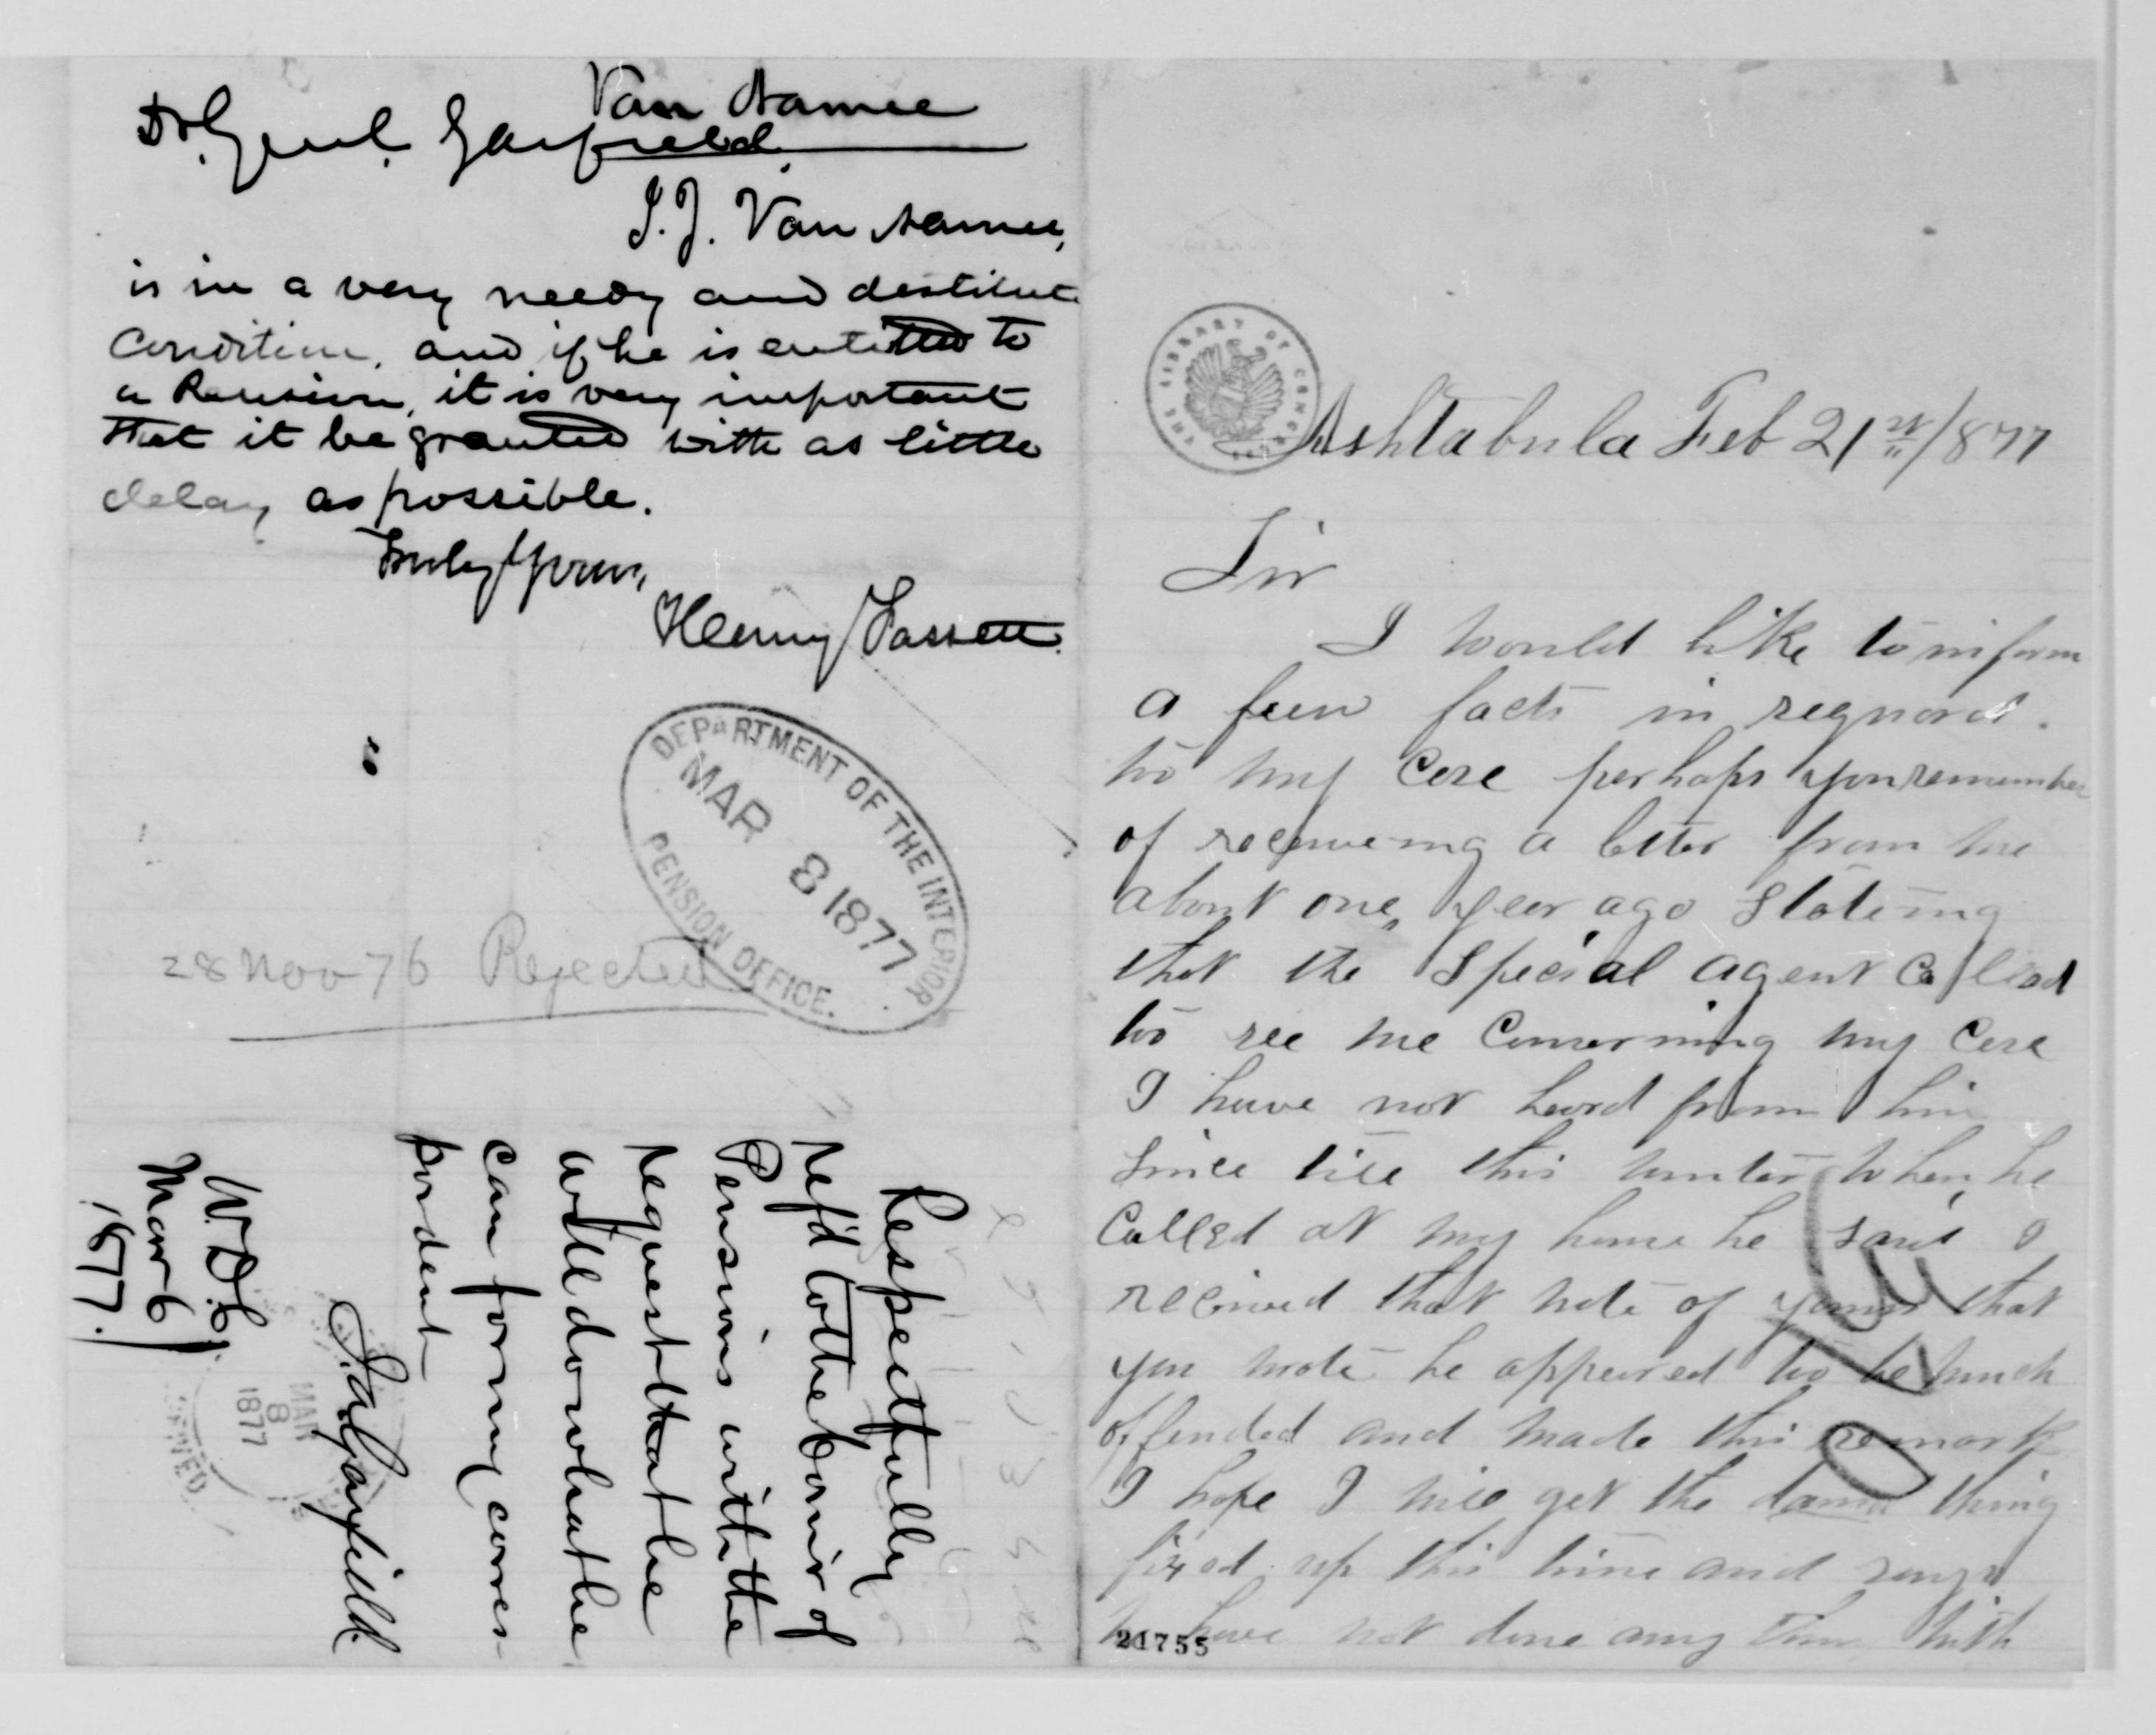 Van Namee
Dr. Genl. Garfield,
I. J. Van Namee,
is in a very needy and destitute
condition, and if he is entitled to
a Pension, it is very important
that it be granted with as little
delay as possible.
Truly Yours,
Henry Fassett.
DEPARTMENT OF THE INTERIOR
MAR 8 1877
PENSION OFFICE.
28 Nov 76 Rejected
Respectfully
ref'd to the Comr of
Pensions with the
request that he
will do what he
can for my corres-
pondent
J. A. Garfield.
W. D.C.
Mar 6
1877.
MAR
8
1877
THE LIBRARY OF CONGRESS
Ashtabula Feb 21st /877
Sir
I would like to inform
a few facts in reguard.
to my Case perhaps you remember
of receiveing a letter from me
about one year ago stateing
that the Special agent Callead
to see me Conserning my Case
I have not heard from him
since till this winter when he
Called at my house he said I
received that note of yours that
you wrote he appeared to be much
offended and made this remark
I hope I will get the damd thing
fixed up this time and says
have not done any thing with
21755